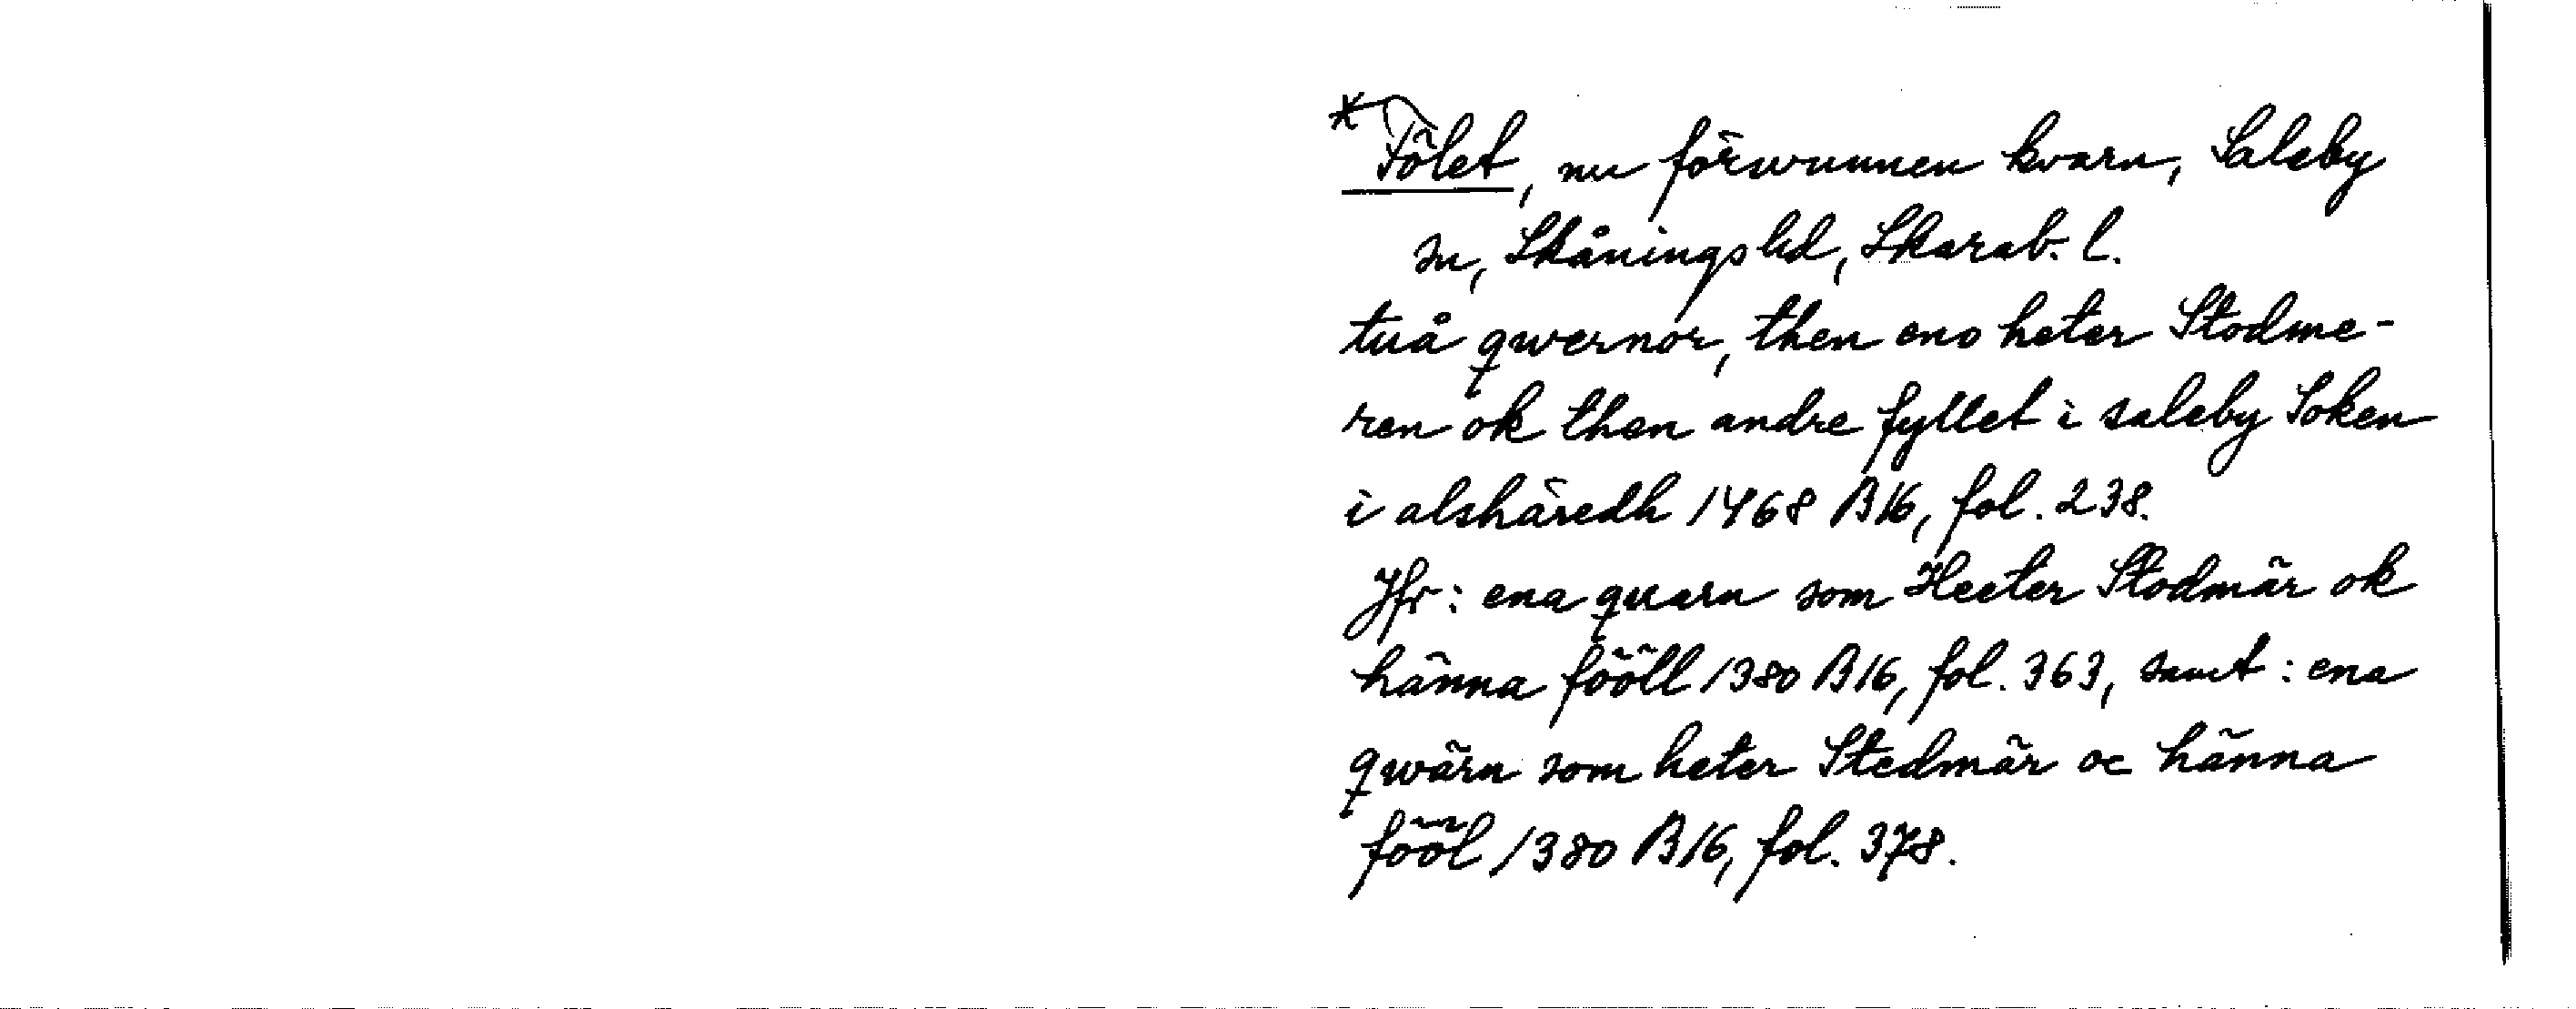 * Fölet, nu försvunnen kvarn, Saleby
sn, Skånings hd, Skarab. l.
tuå qwernor, then eno heter Stodme-
ren ok then andre fyllet i saleby Soken
i alshäredh 1468 B16, fol. 238.
Jfr: ena quarn som Heeter Stodmär ok
hänna fööll 1380 B16, fol. 363, samt: ena
qwärn som heter Stedmär oc hänna
fööl 1380 B16, fol. 378.